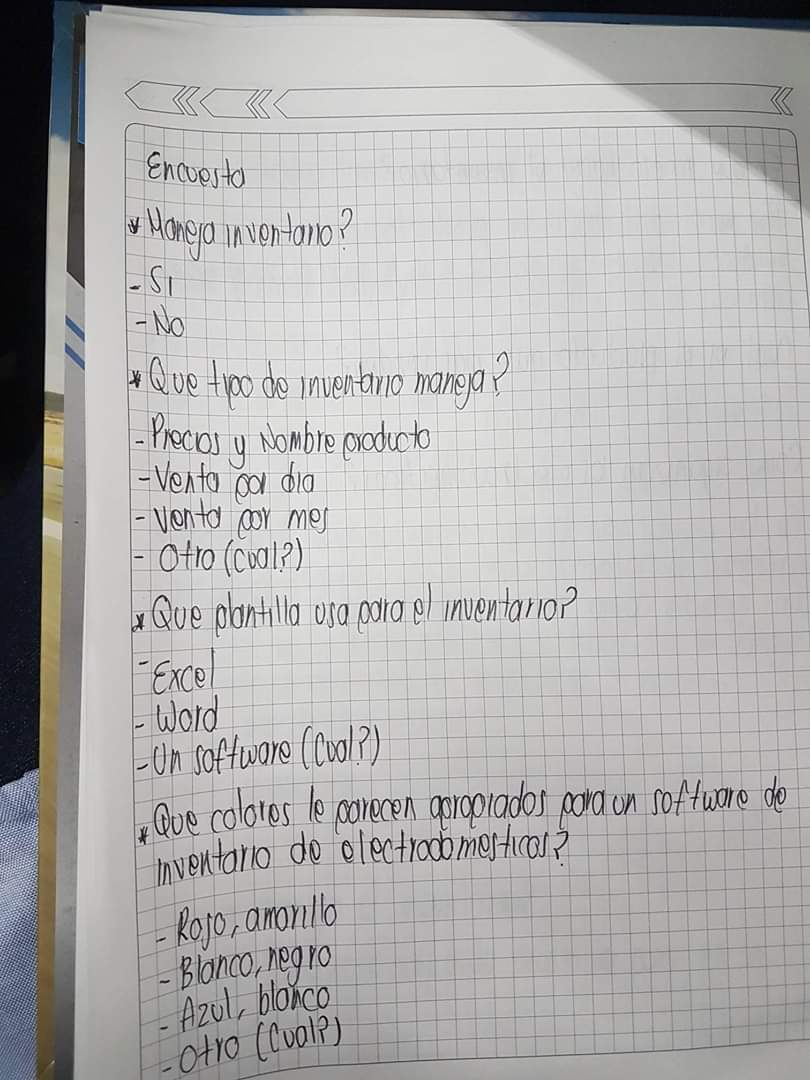 Encuesta
* Maneja inventario?
- Si
- No
* Que tipo de inventario maneja?
- Precios y Nombre producto
- Venta por dia
- Venta por mes
- Otro (Cual?)
* Que plantilla usa para el inventario?
- Excel
- Word
- Un software (Cual?)
* Que colores le parecen apropiados para un software de
inventario de electrodomesticos?
- Rojo, amarillo
- Blanco, negro
- Azul, blanco
- Otro (Cual?)